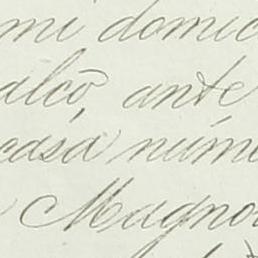 mi domic
alcô, ante
casa núme
Magno